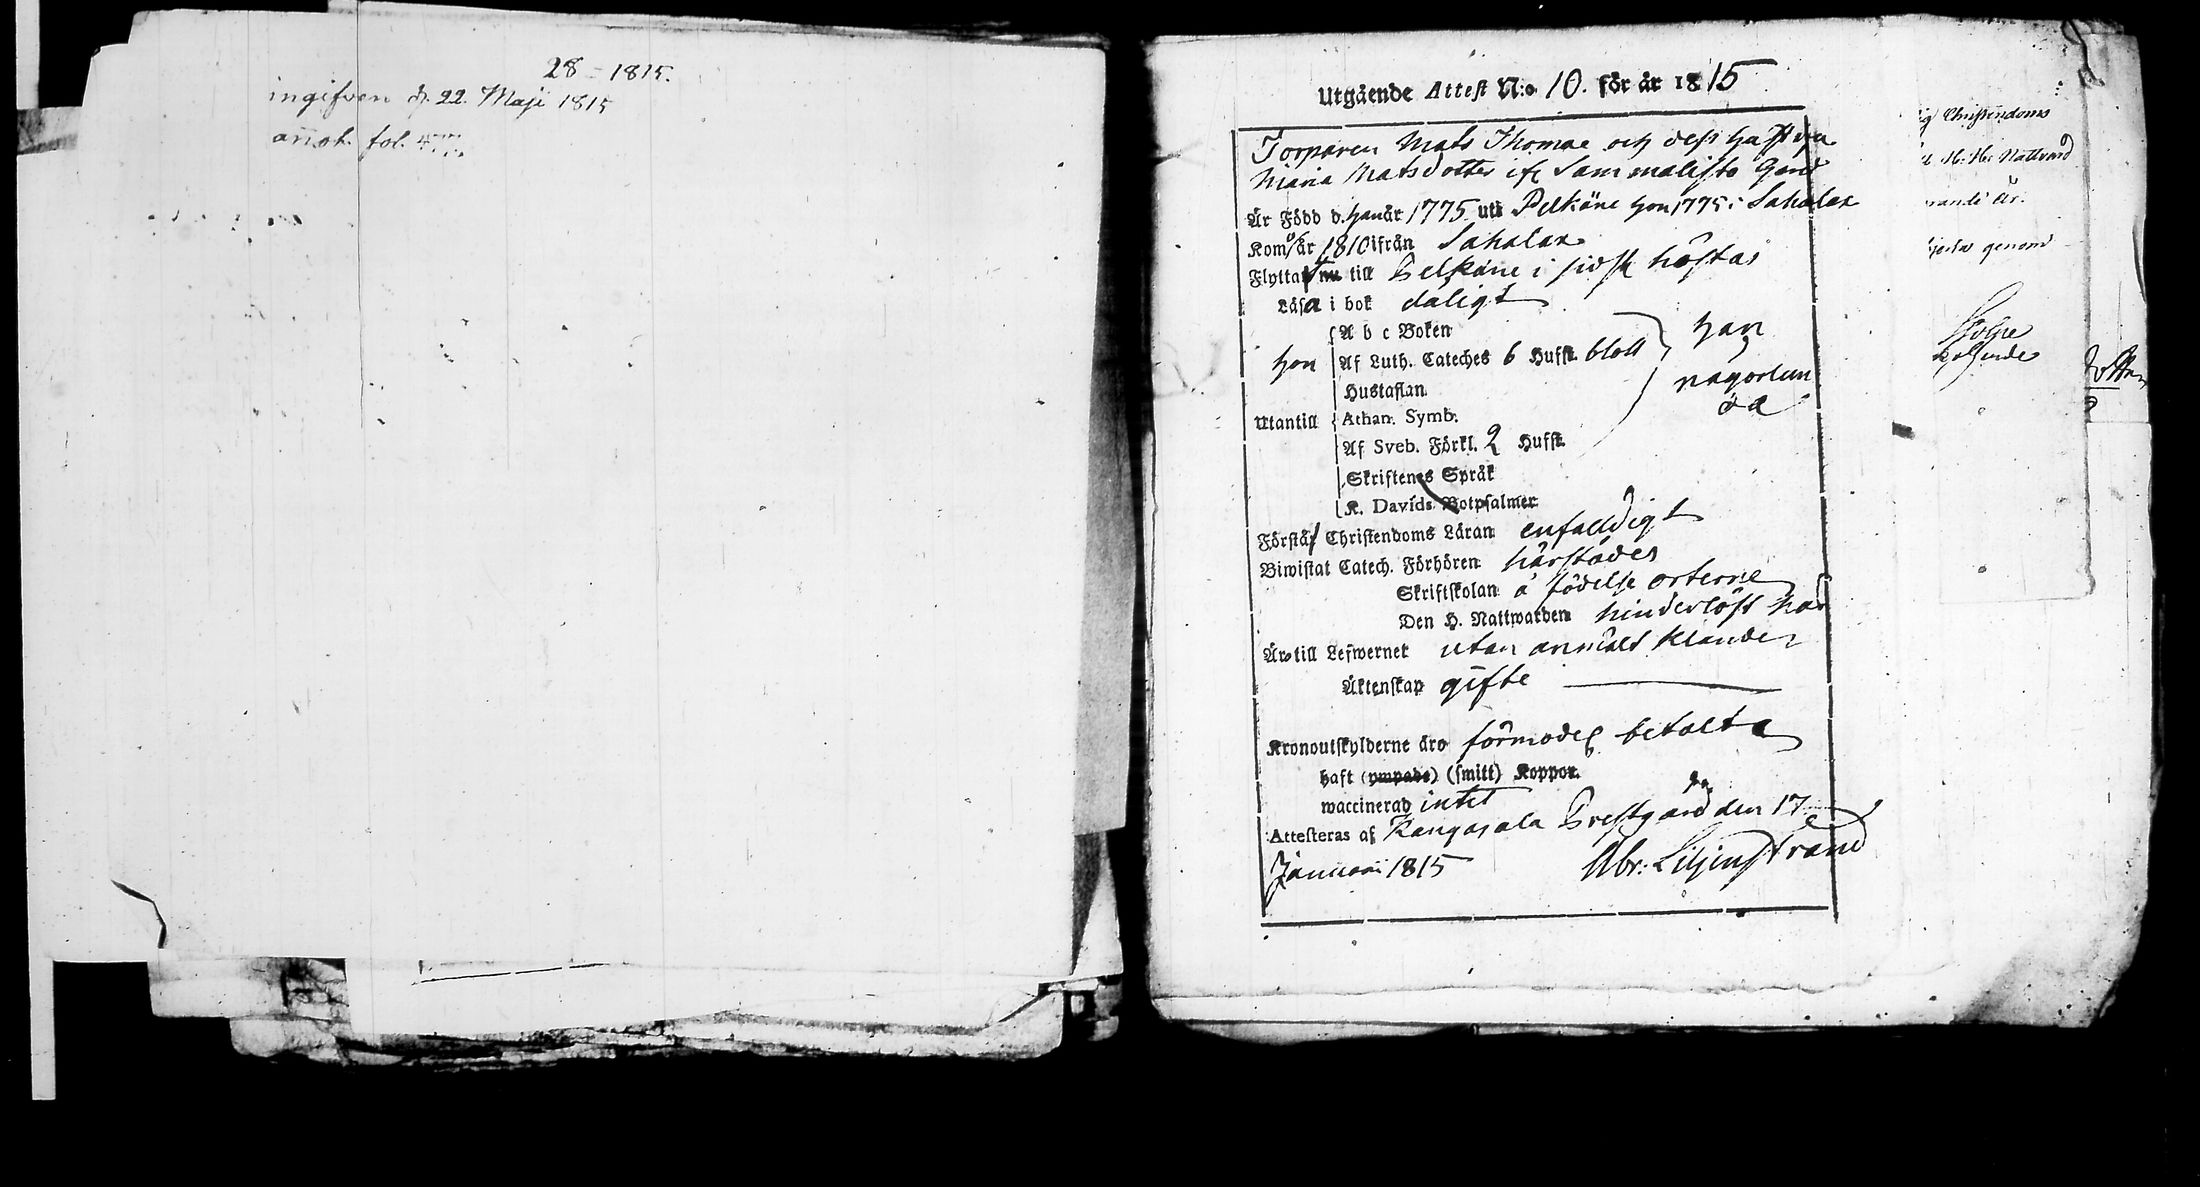 28 - 1815.
ingifven d. 22. Maji 1815
annot. fol. 477.
Utgående Attest N:o 10. för år 1815
Torparen Mats Thomae och dess hustru
Maria Matsdotter ifr Sammalisto Gård
Är Född d. han år 1775 uti Pelkäne hon 1775 i Sahalax
Kom år 1810 ifrån Sahalax
Flyttat nu till Pelkäne i sidst höstas
Läsa i bok dåligt
A b c Boken
hon Af Luth. Cateches 6 Hufst. blott han
Hustaflan någorlun
Utantill Athan. Symb. da
Af Sveb. Förkl. 2 Hufst.
Skriftenes Språk
K. Davids Botpsalmer
Förstå Christendoms Läran enfaldigt
Biwistat Catech. Förhören härstädes
Skriftskolan å födelse orterne
Den H. Nattwarden hinderlöst har
Äro till Lefwernet utan anmält klander
Äktenskap gifte
Kronoutskylderne äro förmodel betalta
haft (ympade) (smitt) Koppor.
waccinerad intet
Attesteras af Kangasala Prestgård den 17
Januari 1815 Abr: Liljenstrand
Christendoms
H: Hs: Nattvard
rande År.
genom